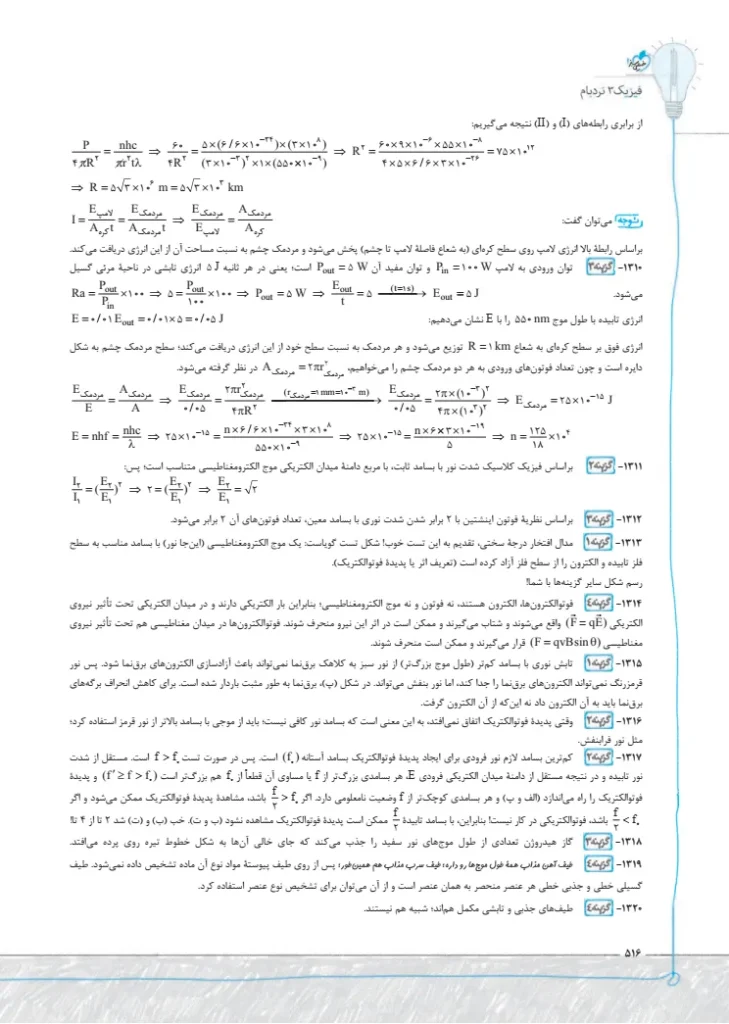 فیزیک ۳ نردبام
از برابری رابطه‌های (I) و (II) نتیجه می‌گیریم:
P/۴πR^۲ = nhc/πr^۲tλ ⇒ ۶۰/۴R^۲ = ۵×(۶/۶×۱۰^−۳۴)×(۳×۱۰^۸)/(۳×۱۰^−۳)^۲×۱×(۵۵۰×۱۰^−۹) ⇒ R^۲ = ۶۰×۹×۱۰^−۶×۵۵×۱۰^−۸/۴×۵×۶/۶×۳×۱۰^−۲۶ = ۷۵×۱۰^۱۲
⇒ R = ۵√۳×۱۰^۶ m = ۵√۳×۱۰^۳ km
توجه می‌توان گفت: I = E لامپ/A کره t = E مردمک/A مردمک t ⇒ E مردمک/E لامپ = A مردمک/A کره
براساس رابطهٔ بالا انرژی لامپ روی سطح کره‌ای (به شعاع فاصلهٔ لامپ تا چشم) پخش می‌شود و مردمک چشم به نسبت مساحت آن از این انرژی دریافت می‌کند.
۱۳۱۰- گزینه ۳ توان ورودی به لامپ P_in = ۱۰۰ W و توان مفید آن P_out = ۵ W است؛ یعنی در هر ثانیه ۵ J انرژی تابشی در ناحیهٔ مرئی گسیل
می‌شود. Ra = P_out/P_in ×۱۰۰ ⇒ ۵ = P_out/۱۰۰ ×۱۰۰ ⇒ P_out = ۵ W ⇒ E_out/t = ۵ (t=۱s)→ E_out = ۵ J
انرژی تابیده با طول موج ۵۵۰ nm را با E نشان می‌دهیم: E = ۰/۰۱E_out = ۰/۰۱×۵ = ۰/۰۵ J
انرژی فوق بر سطح کره‌ای به شعاع R = ۱ km توزیع می‌شود و هر مردمک به نسبت سطح خود از این انرژی دریافت می‌کند؛ سطح مردمک چشم به شکل
دایره است و چون تعداد فوتون‌های ورودی به هر دو مردمک چشم را می‌خواهیم، A مردمک = ۲πr^۲ مردمک در نظر گرفته می‌شود.
E مردمک/E = A مردمک/A ⇒ E مردمک/۰/۰۵ = ۲πr^۲ مردمک/۴πR^۲ (r مردمک = ۱ mm = ۱۰^−۳ m)→ E مردمک/۰/۰۵ = ۲π×(۱۰^−۳)^۲/۴π×(۱۰^۳)^۲ ⇒ E مردمک = ۲۵×۱۰^−۱۵ J
E = nhf = nhc/λ ⇒ ۲۵×۱۰^−۱۵ = n×۶/۶×۱۰^−۳۴×۳×۱۰^۸/۵۵۰×۱۰^−۹ ⇒ ۲۵×۱۰^−۱۵ = n×۶×۳×۱۰^−۱۹/۵ ⇒ n = ۱۲۵/۱۸ ×۱۰^۴
۱۳۱۱- گزینه ۲ براساس فیزیک کلاسیک شدت نور با بسامد ثابت، با مربع دامنهٔ میدان الکتریکی موج الکترومغناطیسی متناسب است؛ پس:
I_۲/I_۱ = (E_۲/E_۱)^۲ ⇒ ۲ = (E_۲/E_۱)^۲ ⇒ E_۲/E_۱ = √۲
۱۳۱۲- گزینه ۳ براساس نظریهٔ فوتون اینشتین با ۲ برابر شدن شدت نوری با بسامد معین، تعداد فوتون‌های آن ۲ برابر می‌شود.
۱۳۱۳- گزینه ۱ مدال افتخار درجهٔ سختی، تقدیم به این تست خوب! شکل تست گویاست: یک موج الکترومغناطیسی (این‌جا نور) با بسامد مناسب به سطح
فلز تابیده و الکترون را از سطح فلز آزاد کرده است (تعریف اثر یا پدیدهٔ فوتوالکتریک).
رسم شکل سایر گزینه‌ها با شما!
۱۳۱۴- گزینه ۴ فوتوالکترون‌ها، الکترون هستند، نه فوتون و نه موج الکترومغناطیسی؛ بنابراین بار الکتریکی دارند و در میدان الکتریکی تحت تأثیر نیروی
الکتریکی (F⃗ = qE⃗) واقع می‌شوند و شتاب می‌گیرند و ممکن است در اثر این نیرو منحرف شوند. فوتوالکترون‌ها در میدان مغناطیسی هم تحت تأثیر نیروی
مغناطیسی (F = qvBsinθ) قرار می‌گیرند و ممکن است منحرف شوند.
۱۳۱۵- گزینه ۱ تابش نوری با بسامد کم‌تر (طول موج بزرگ‌تر) از نور سبز به کلاهک برق‌نما نمی‌تواند باعث آزادسازی الکترون‌های برق‌نما شود. پس نور
قرمزرنگ نمی‌تواند الکترون‌های برق‌نما را جدا کند، اما نور بنفش می‌تواند. در شکل (پ)، برق‌نما به طور مثبت باردار شده است. برای کاهش انحراف برگه‌های
برق‌نما باید به آن الکترون داد نه این‌که از آن الکترون گرفت.
۱۳۱۶- گزینه ۲ وقتی پدیدهٔ فوتوالکتریک اتفاق نمی‌افتد، به این معنی است که بسامد نور کافی نیست؛ باید از موجی با بسامد بالاتر از نور قرمز استفاده کرد؛
مثل نور فرابنفش.
۱۳۱۷- گزینه ۲ کم‌ترین بسامد لازم نور فرودی برای ایجاد پدیدهٔ فوتوالکتریک بسامد آستانه (f_۰) است. پس در صورت تست f > f_۰ است. مستقل از شدت
نور تابیده و در نتیجه مستقل از دامنهٔ میدان الکتریکی فرودی E، هر بسامدی بزرگ‌تر از f یا مساوی آن قطعاً از f_۰ هم بزرگ‌تر است (f′ ≥ f > f_۰) و پدیدهٔ
فوتوالکتریک را راه می‌اندازد (الف و پ) و هر بسامدی کوچک‌تر از f وضعیت نامعلومی دارد. اگر f/۲ > f_۰ باشد، مشاهدهٔ پدیدهٔ فوتوالکتریک ممکن می‌شود و اگر
f/۲ < f_۰ باشد، فوتوالکتریکی در کار نیست! بنابراین، با بسامد تابیدهٔ f/۲ ممکن است پدیدهٔ فوتوالکتریک مشاهده نشود (ب و ت). خب (ب) و (ت) شد ۲ تا از ۴ تا!
۱۳۱۸- گزینه ۳ گاز هیدروژن تعدادی از طول موج‌های نور سفید را جذب می‌کند که جای خالی آن‌ها به شکل خطوط تیره روی پرده می‌افتد.
۱۳۱۹- گزینه ۴ طیف آهن مذاب همهٔ طول موج‌ها رو داره؛ طیف سرب مذاب هم همین‌طور؛ پس از روی طیف پیوستهٔ مواد نوع آن ماده تشخیص داده نمی‌شود. طیف
گسیلی خطی و جذبی خطی هر عنصر منحصر به همان عنصر است و از آن می‌توان برای تشخیص نوع عنصر استفاده کرد.
۱۳۲۰- گزینه ۴ طیف‌های جذبی و تابشی مکمل هم‌اند؛ شبیه هم نیستند.
۵۱۶